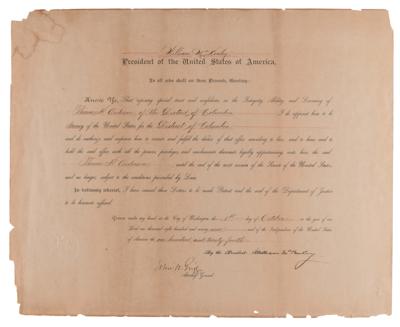 William McKinley
President of the United States of America,
To all who shall see these Presents, Greeting:
Know Ye, That reposing special trust and confidence in the Integrity, Ability and Learning of
Thomas H. Anderson of the District of Columbia I do appoint him to be
Attorney of the United States for the District of Columbia
and do authorize and empower him to execute and fulfill the duties of that office according to law, and to have and to
hold the said office with all the powers, privileges and emoluments thereunto legally appertaining unto him, the said
Thomas H. Anderson until the end of the next session of the Senate of the United States,
and no longer, subject to the conditions prescribed by Law.
In testimony whereof, I have caused these Letters to be made Patent and the seal of the Department of Justice
to be hereunto affixed.
Given under my hand at the City of Washington the day of October in the year of our
Lord one thousand eight hundred and ninety nine and of the Independence of the United States
of America the one hundred and twenty fourth.
By the President William McKinley
John W. Griggs
Attorney General